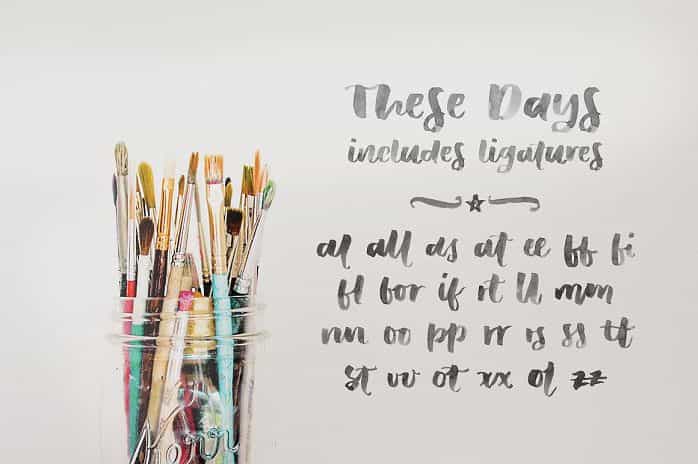 These Days
includes ligatures
al all as at ee ff fi
fl for if it ll mm
nn oo pp rr is ss tt
st vv ot xx ol zz